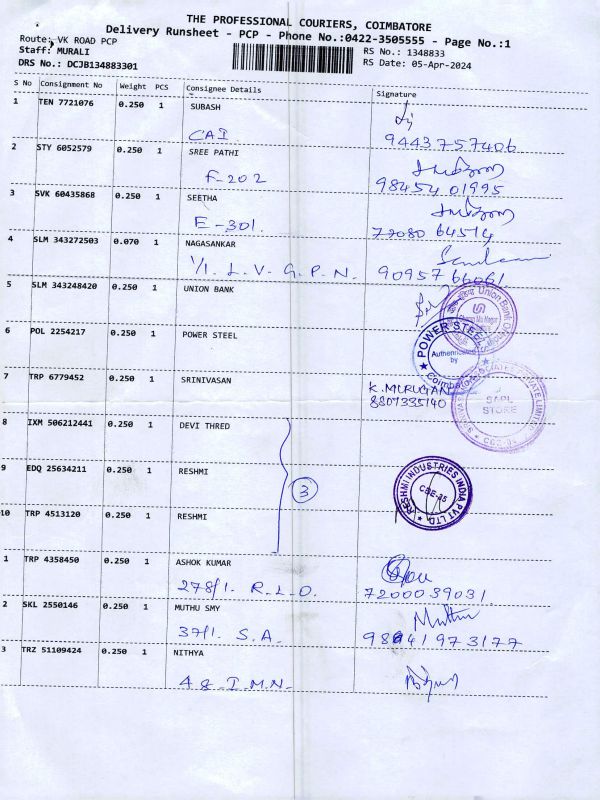 THE PROFESSIONAL COURIERS, COIMBATORE
Delivery Runsheet - PCP - Phone No.:0422-3505555 - Page No.:1
Route: VK ROAD PCP
Staff: MURALI
DRS No.: DCJB134883301
RS No.: 1348833
RS Date: 05-Apr-2024
S No Consignment No Weight PCS Consignee Details Signature
1 TEN 7721076 0.250 1 SUBASH
CAI 9443757406
2 STY 6052579 0.250 1 SREE PATHI
F-202 98454 01995
3 SVK 60435868 0.250 1 SEETHA
E-301. 72080 64514
4 SLM 343272503 0.070 1 NAGASANKAR
1/1. L. V. G. P. N. 90957 66061.
5 SLM 343248420 0.250 1 UNION BANK
Union Bank
6 POL 2254217 0.250 1 POWER STEEL
POWER STEEL
Authenticated
by
Coimbatore
7 TRP 6779452 0.250 1 SRINIVASAN K. MURUGAN
8807335140
PRIVATE LIMITED
SAPL
STORE
8 IXM 506212441 0.250 1 DEVI THRED
9 EDQ 25634211 0.250 1 RESHMI
3
RESHMI INDUSTRIES INDIA PVT LTD.
CBE-35
10 TRP 4513120 0.250 1 RESHMI
1 TRP 4358450 0.250 1 ASHOK KUMAR
278/1. R.L.O. 7200039031.
2 SKL 2550146 0.250 1 MUTHU SMY Muthu
37/1. S.A. 98841973177
3 TRZ 51109424 0.250 1 NITHYA
48-I.M.N.